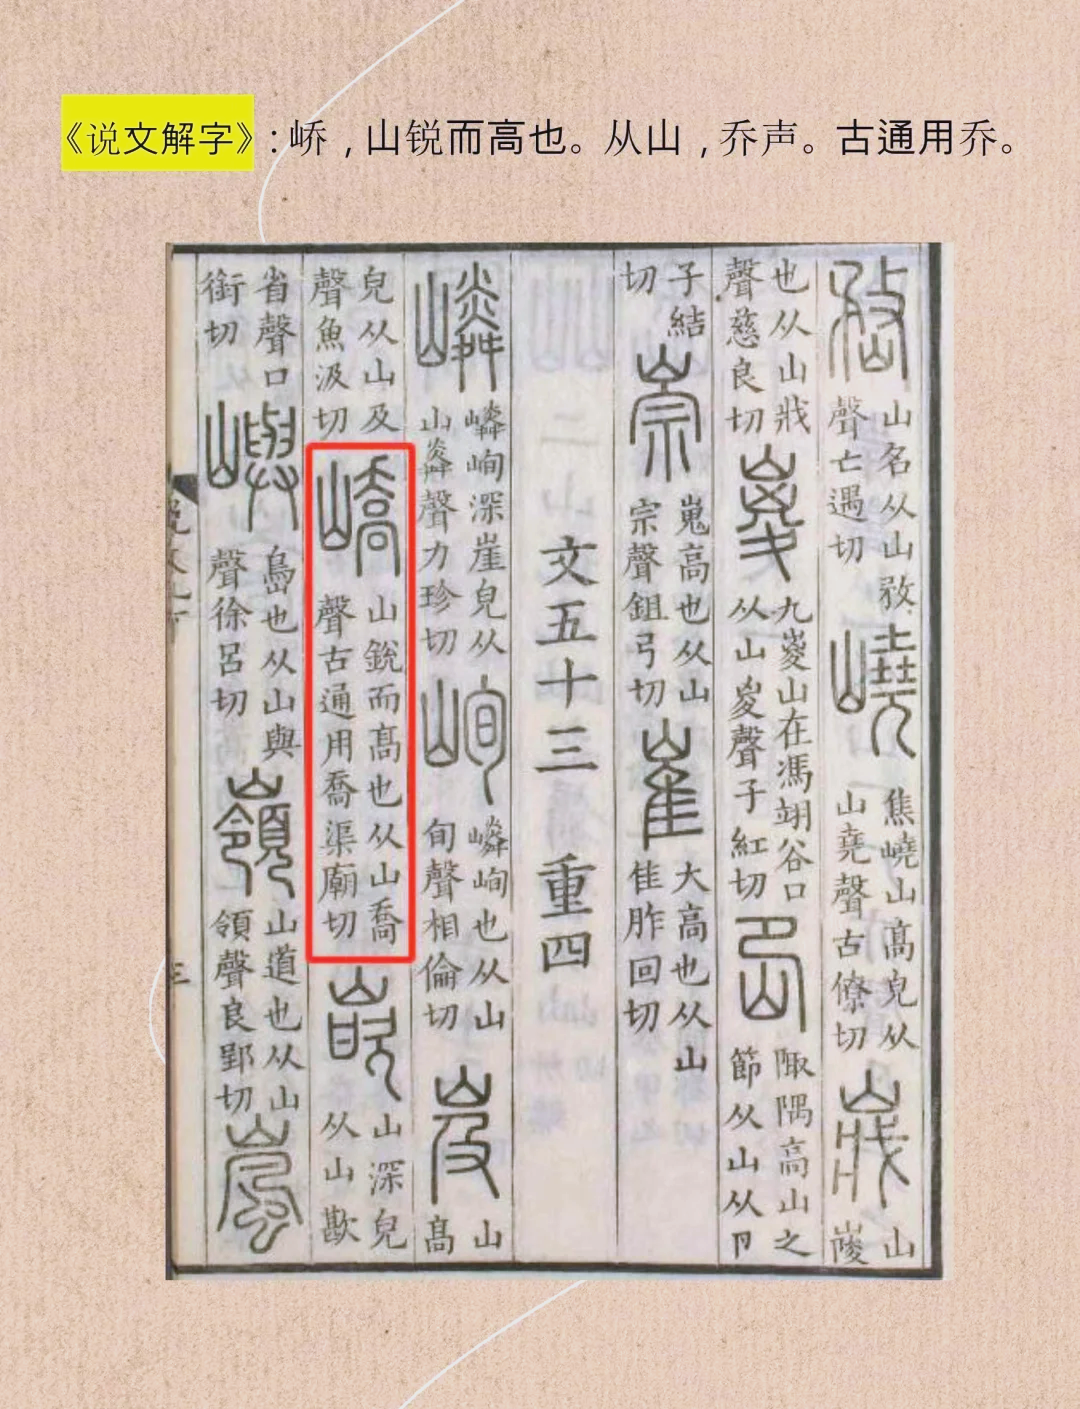 《说文解字》: 峤，山锐而高也。从山，乔声。古通用乔。
嵍
山名从山敄
聲亡遇切
嶢
焦嶢山髙皃从
山堯聲古僚切
㟄
山
也从山戕
聲慈良切
嵏
九嵏山在馮翊谷口
从山㚇聲子紅切
岊
陬隅高山之
節从山从卪
子結
切
崇
嵬高也从山
宗聲鉏弓切
崔
大高也从山
隹胙回切
文五十三 重四
嶙
嶙峋深崖皃从
山粦聲力珍切
峋
嶙峋也从山
旬聲相倫切
岌
山
髙
皃从山及
聲魚汲切
嶠
山銳而髙也从山喬
聲古通用喬渠廟切
嵌
山深皃
从山歁
省聲口
銜切
嶼
島也从山與
聲徐呂切
嶺
山道也从山
領聲良郢切
嵐